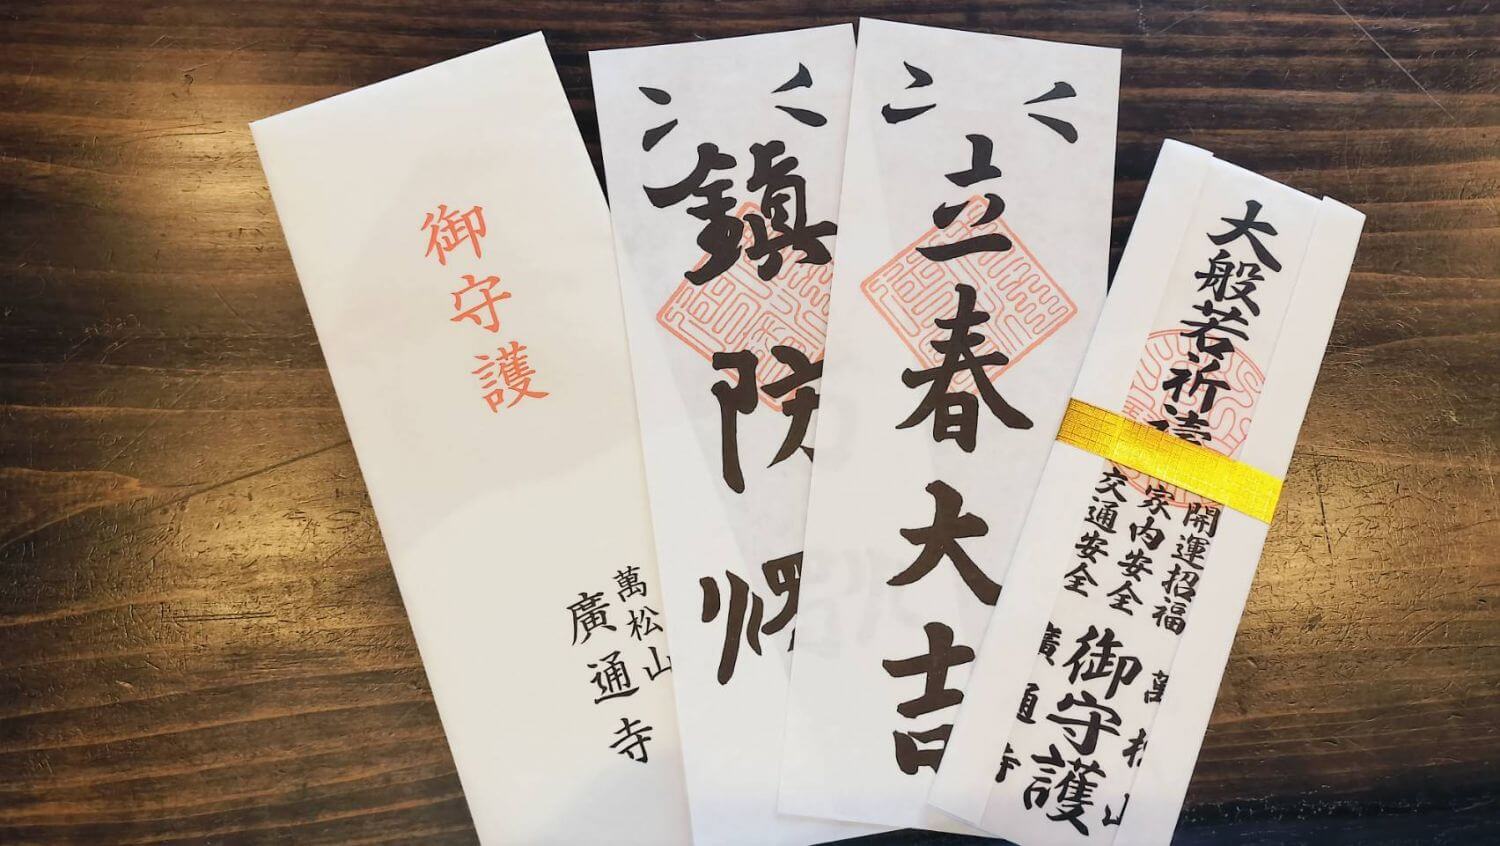 御守護
萬松山
廣通寺
鎮防燭
立春大吉
大般若祈禱
開運招福
家内安全
交通安全
御守護
萬松山
廣通寺